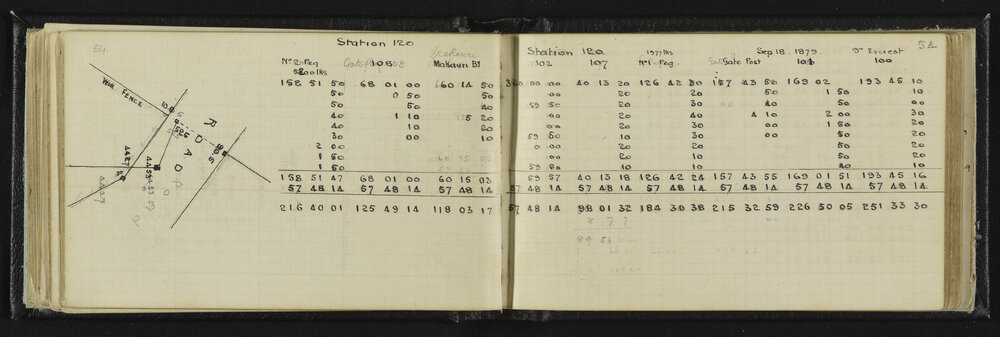 54
Station 120
Nº2 Peg 108 Makauri BY
158 51 50 68 01 00 60 14 50
50 0 50 50
50 50 40
40 1 10 5 20
40 10 20
30 00 10
2 00
1 50
1 50
158 51 47 68 01 00 60 15 03
57 48 14 57 48 14 57 48 14
216 40 01 125 49 14 118 03 17
WIRE FENCE
ROAD
4427
54
Station 120 1977 lks Sep 18. 1879. 9" Everest
102 107 Nº1 Peg Gate Post 100
360 00 00 40 13 20 126 42 30 157 43 50 169 02 193 45 10
00 20 20 50 1 50 10
59 50 20 30 40 50 00
00 20 40 4 10 2 00 30
00 10 30 00 1 50 20
59 50 10 30 00 50 20
0 00 00 20 50 20
00 20 10 50 20
59 50 10 10 40 10
59 57 40 13 18 126 42 24 157 43 55 169 01 51 193 45 16
57 48 14 57 48 14 57 48 14 57 48 14 57 48 14 57 48 14
57 48 14 98 01 32 184 30 38 215 32 59 226 50 05 251 33 30
89 54